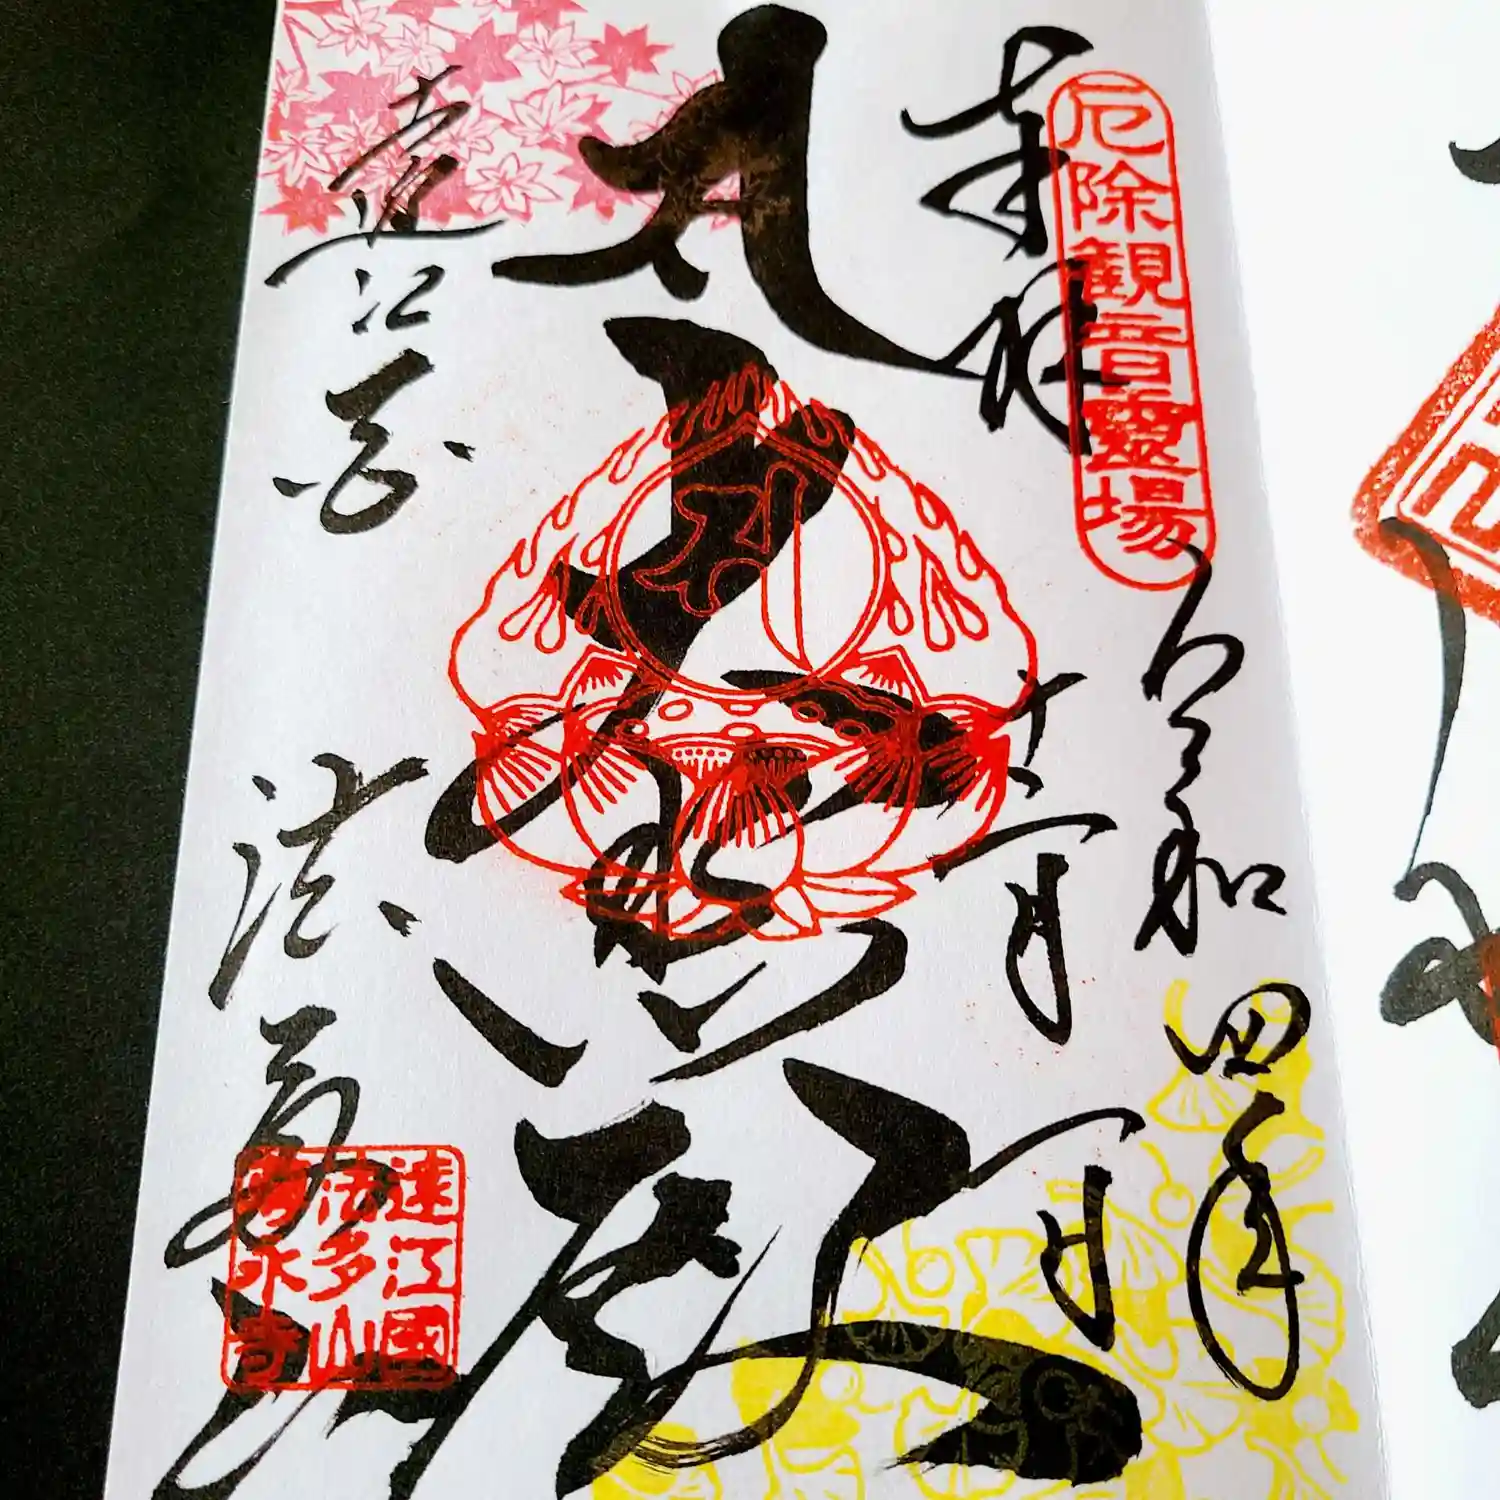 厄除観音霊場
奉拝
令和四年
十二月
サ
大悲殿
遠江国
法多山
遠江国
法多山
尊永寺